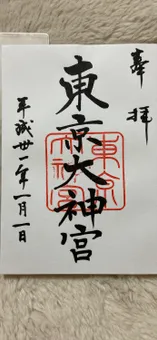 奉拝
東京大神宮
東京
大神宮
平成丗一年一月一日